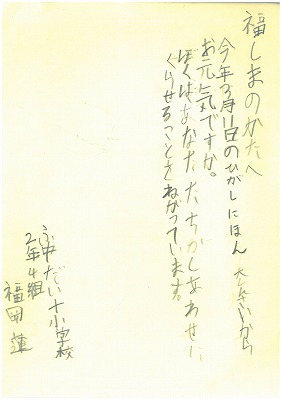 福しまのかたへ
今年3月11日のひがしにほん大しんさいから
お元気ですか。
ぼくはあなたたちがしあわせに
くらせることをねがっています。
ふ中だい十小学校
2年4組
福田蓮